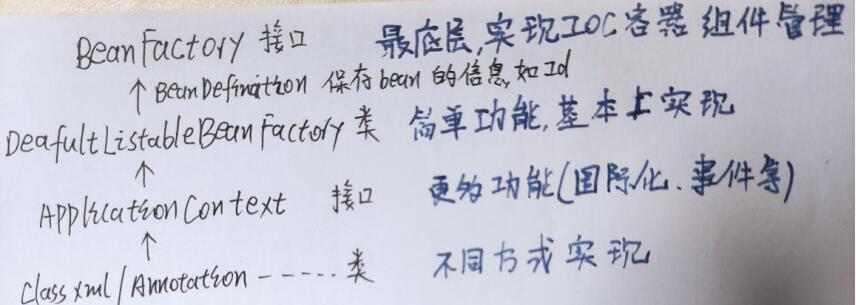 BeanFactory 接口 最底层,实现IOC容器 组件管理
↑ BeanDefinition 保存bean的信息,如Id
DeafultListableBeanFactory 类 简单功能,基本上实现
↑
ApplicationContext 接口 更多功能(国际化、事件等)
↑
Classxml/Annotation ------ 类 不同方式实现